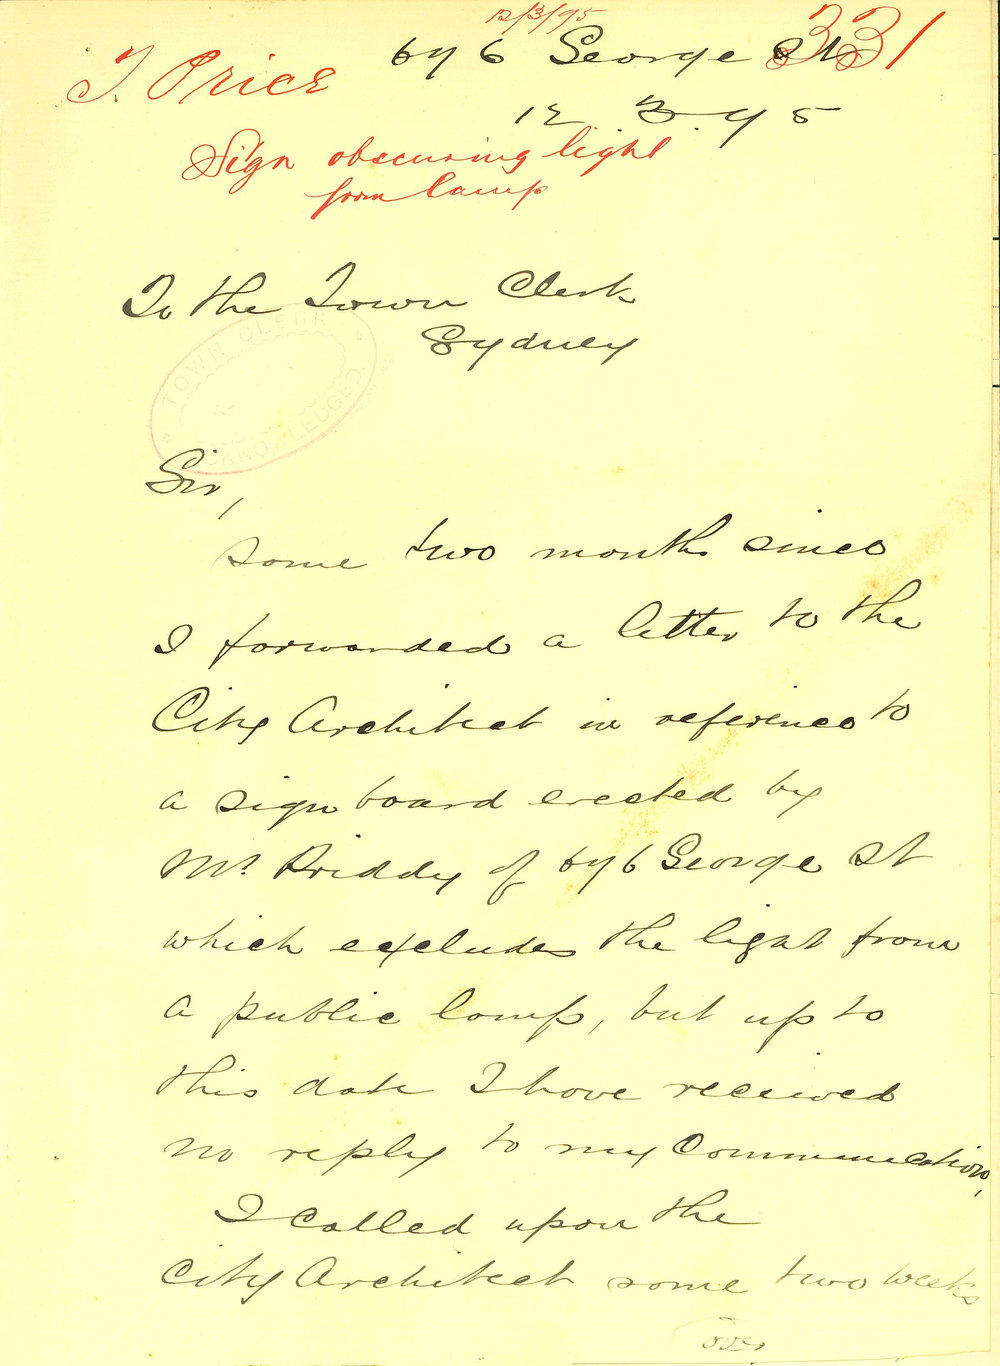 12/3/95
331
T. Price
696 George St
12.3.95
Sign obscuring light
from lamp
To the Town Clerk
Sydney
TOWN CLERK
ACKNOWLEDGED
Sir,
some two months since
I forwarded a letter to the
City Architect in reference to
a sign board erected by
Mr. Priddy of 696 George St
which excludes the light from
a public lamp, but up to
this date I have received
no reply to my Communication,
I called upon the
City Architect some two weeks
over